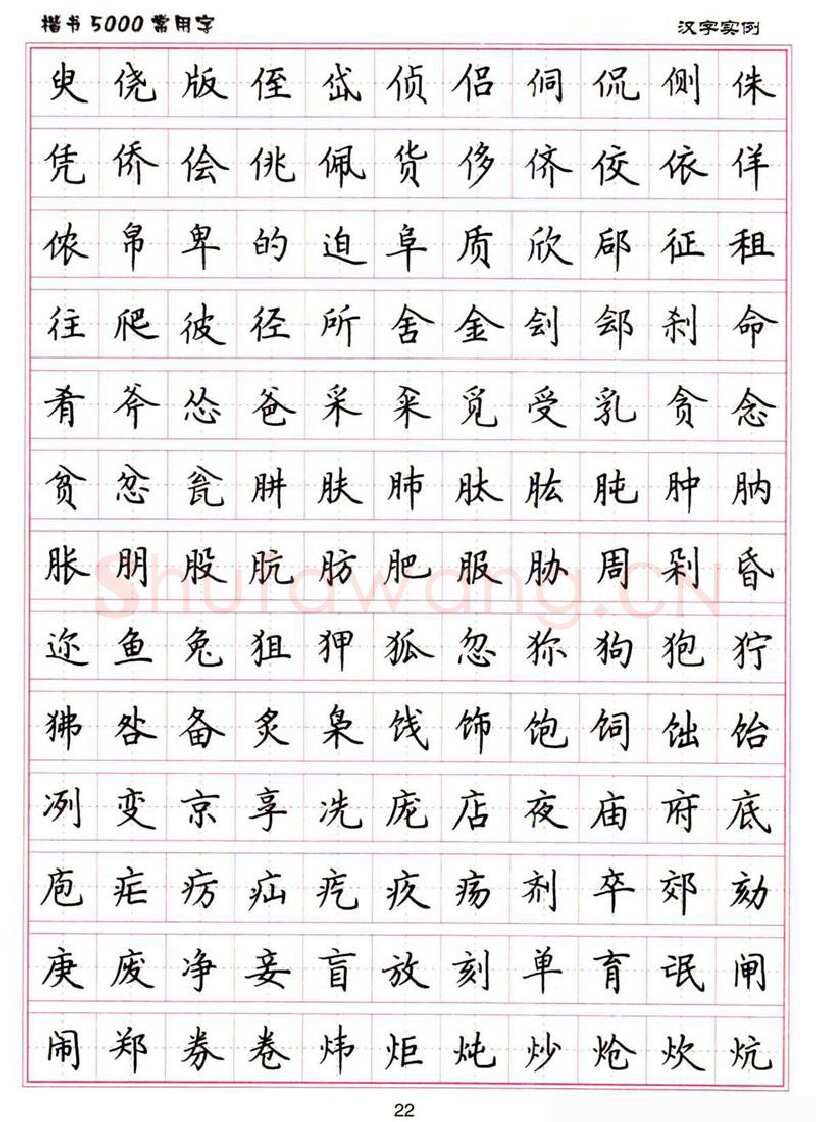 楷书5000常用字 汉字实例
臾侥版侄岱侦侣侗侃侧侏
凭侨侩佻佩货侈侪佼依佯
侬帛卑的迫阜质欣郈征徂
往爬彼径所舍金刽郐刹命
肴斧怂爸采籴觅受乳贪念
贫忿瓮肼肤肺肽肱肫肿肭
胀朋股肮肪肥服胁周剁昏
迩鱼兔狙狎狐忽狝狗狍狞
狒咎备炙枭饯饰饱饲饳饴
冽变京享冼庞店夜庙府底
庖疟疠疝疙疚疡剂卒郊劾
庚废净妾盲放刻单育氓闸
闹郑券卷炜炬炖炒炝炊炕
Shufawang.CN
22